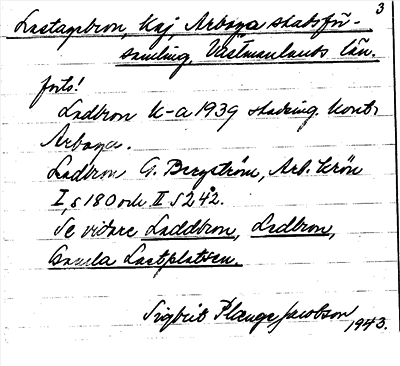 3
Lastagebron, Kaj, Arboga stadsför-
samling, Västmanlands län.
forts!
Ladbron K-a 1939 stadsing. kont.
Arboga.
Ladbron G. Bergström, Arb. krön
I, s 180 och II s 242.
Se vidare Laddbron, Ledbron,
Gamla Lastplatsen.
Sigbrit Plænge Jacobson
1943.